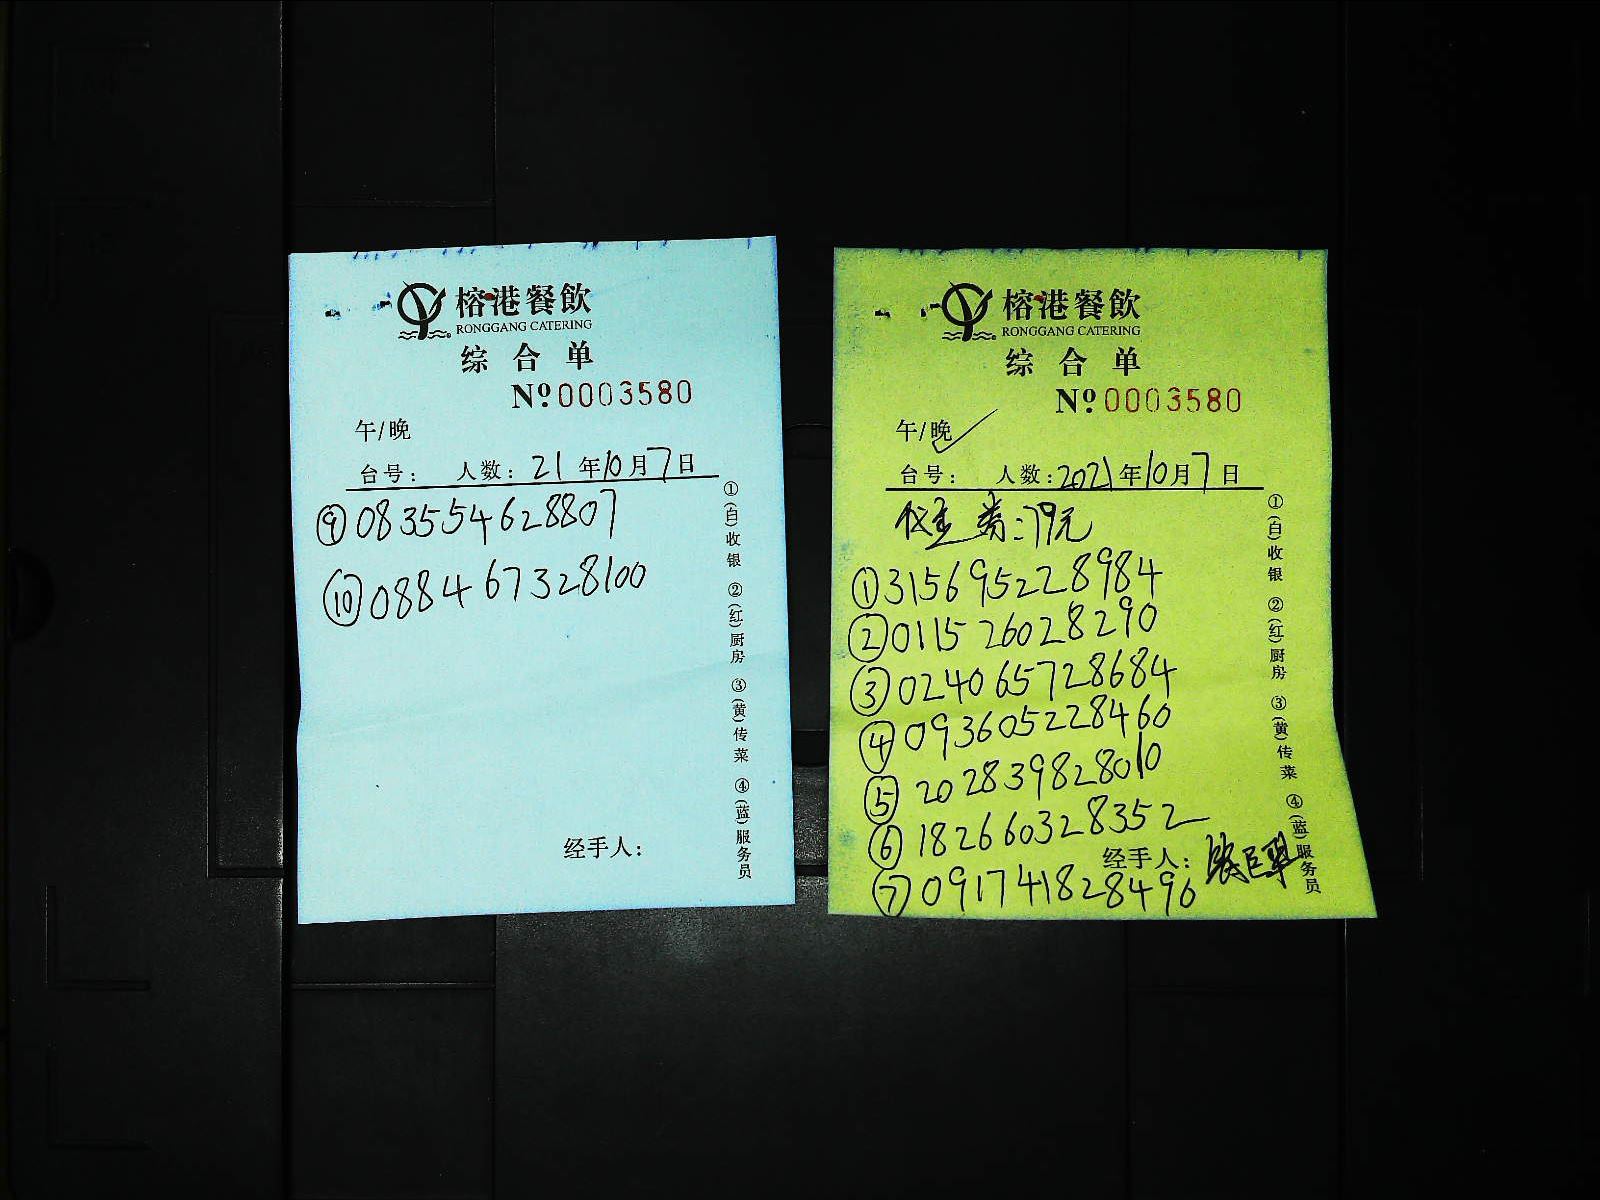 榕港餐飲
RONGGANG CATERING
综合单
Nº 0003580
午/晚
台号： 人数：21年10月7日
⑨083554628807
⑩088467328100
经手人：
①(白)收银 ②(红)厨房 ③(黄)传菜 ④(蓝)服务员
榕港餐飲
RONGGANG CATERING
综合单
Nº 0003580
午/晚✓
台号： 人数：2021年10月7日
代金券：79元
①315695228984
②011526028290
③024065728684
④093605228460
⑤202839828010
⑥182660328352
经手人：
⑦091741828496
①(白)收银 ②(红)厨房 ③(黄)传菜 ④(蓝)服务员